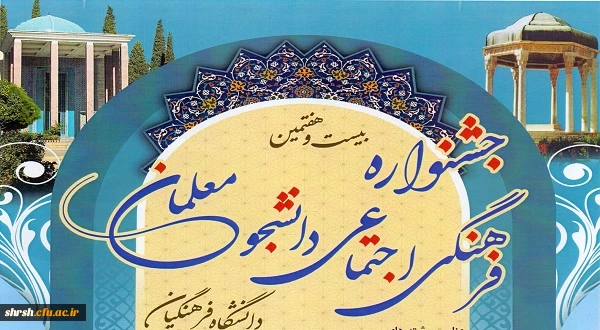 بیست و هفتمین
جشنواره
فرهنگی اجتماعی دانشجو معلمان
دانشگاه فرهنگیان
shrsh.cfu.ac.ir